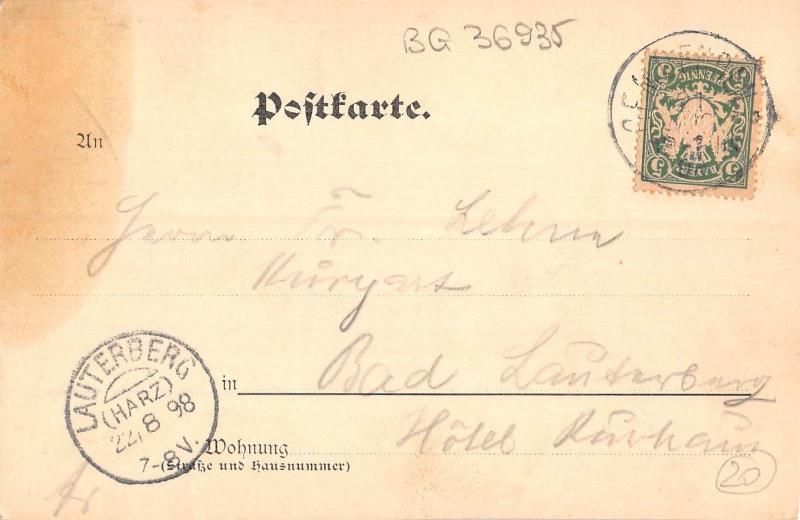 BG 36935
Postkarte.
An
5 PFENNIG 5
5 BAYERN 5
Herrn Fr. Lehne
Kurgast
in Bad Lauterberg
Hôtel Kurhaus
Wohnung
(Straße und Hausnummer)
LAUTERBERG
(HARZ)
22/8 98
7-8V.
20